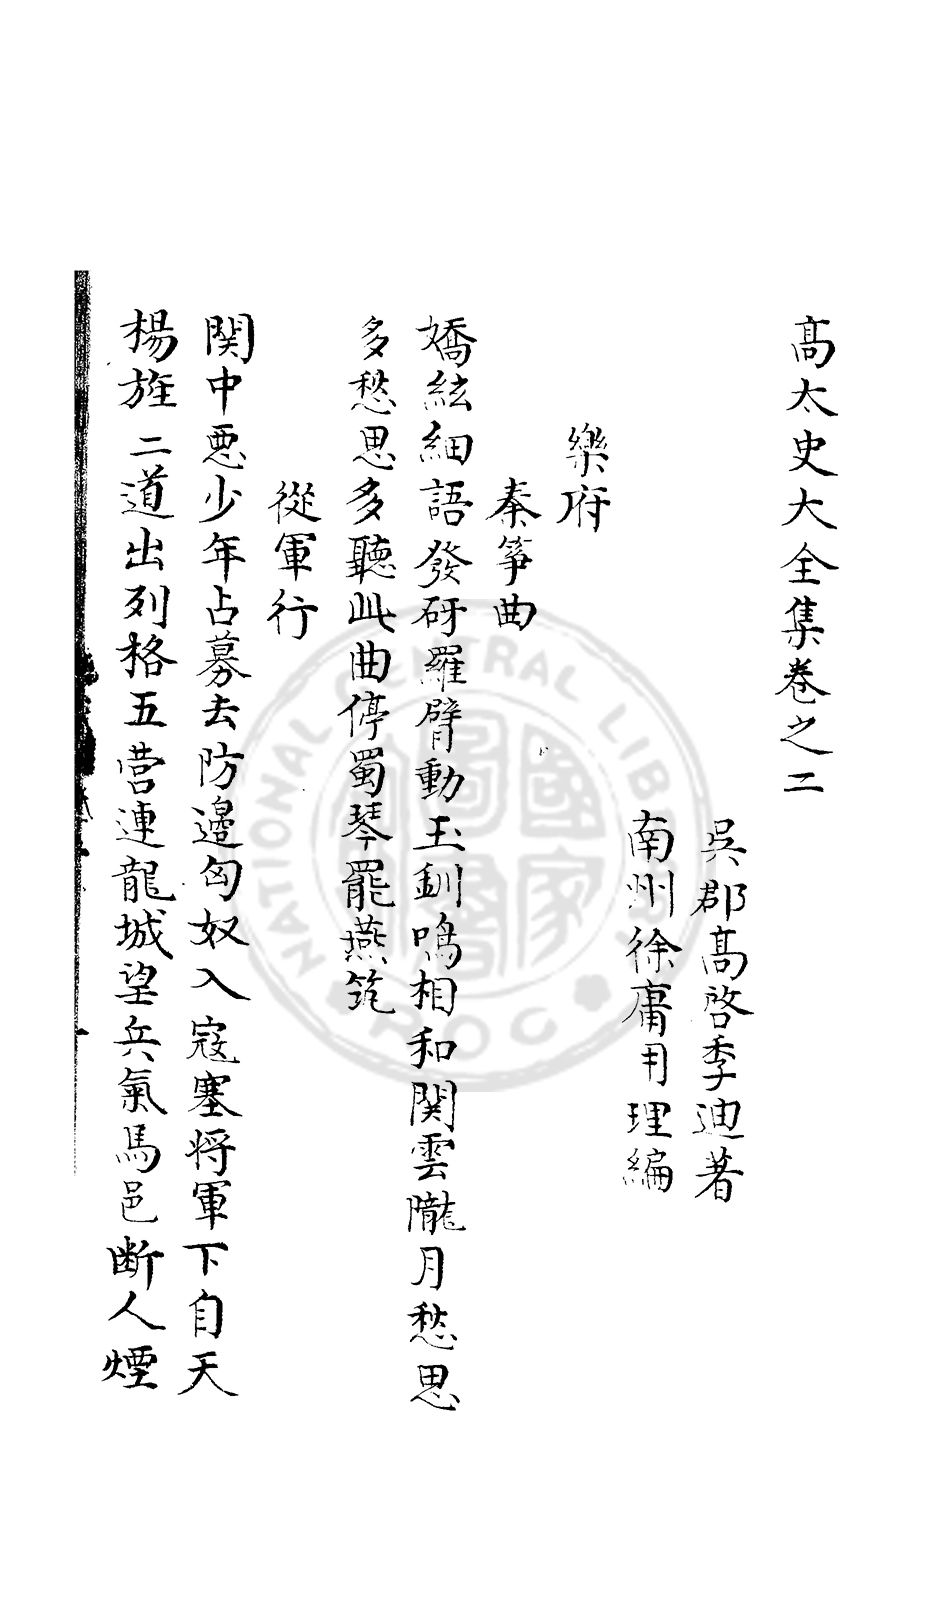 髙太史大全集卷之二
吳郡髙啓季迪著
南州徐庸用理編
樂府
秦筝曲
嬌絃細語發砑羅臂動玉釧鳴相和関雲隴月愁思
多愁思多聽此曲停蜀琴罷燕筑
從軍行
関中悪少年占募去防邉匈奴入寇塞将軍下自天
楊旌二道出列格五营連龍城望兵氣馬邑断人煙
NATIONAL CENTRAL LIBRARY
ROC
國家圖書館